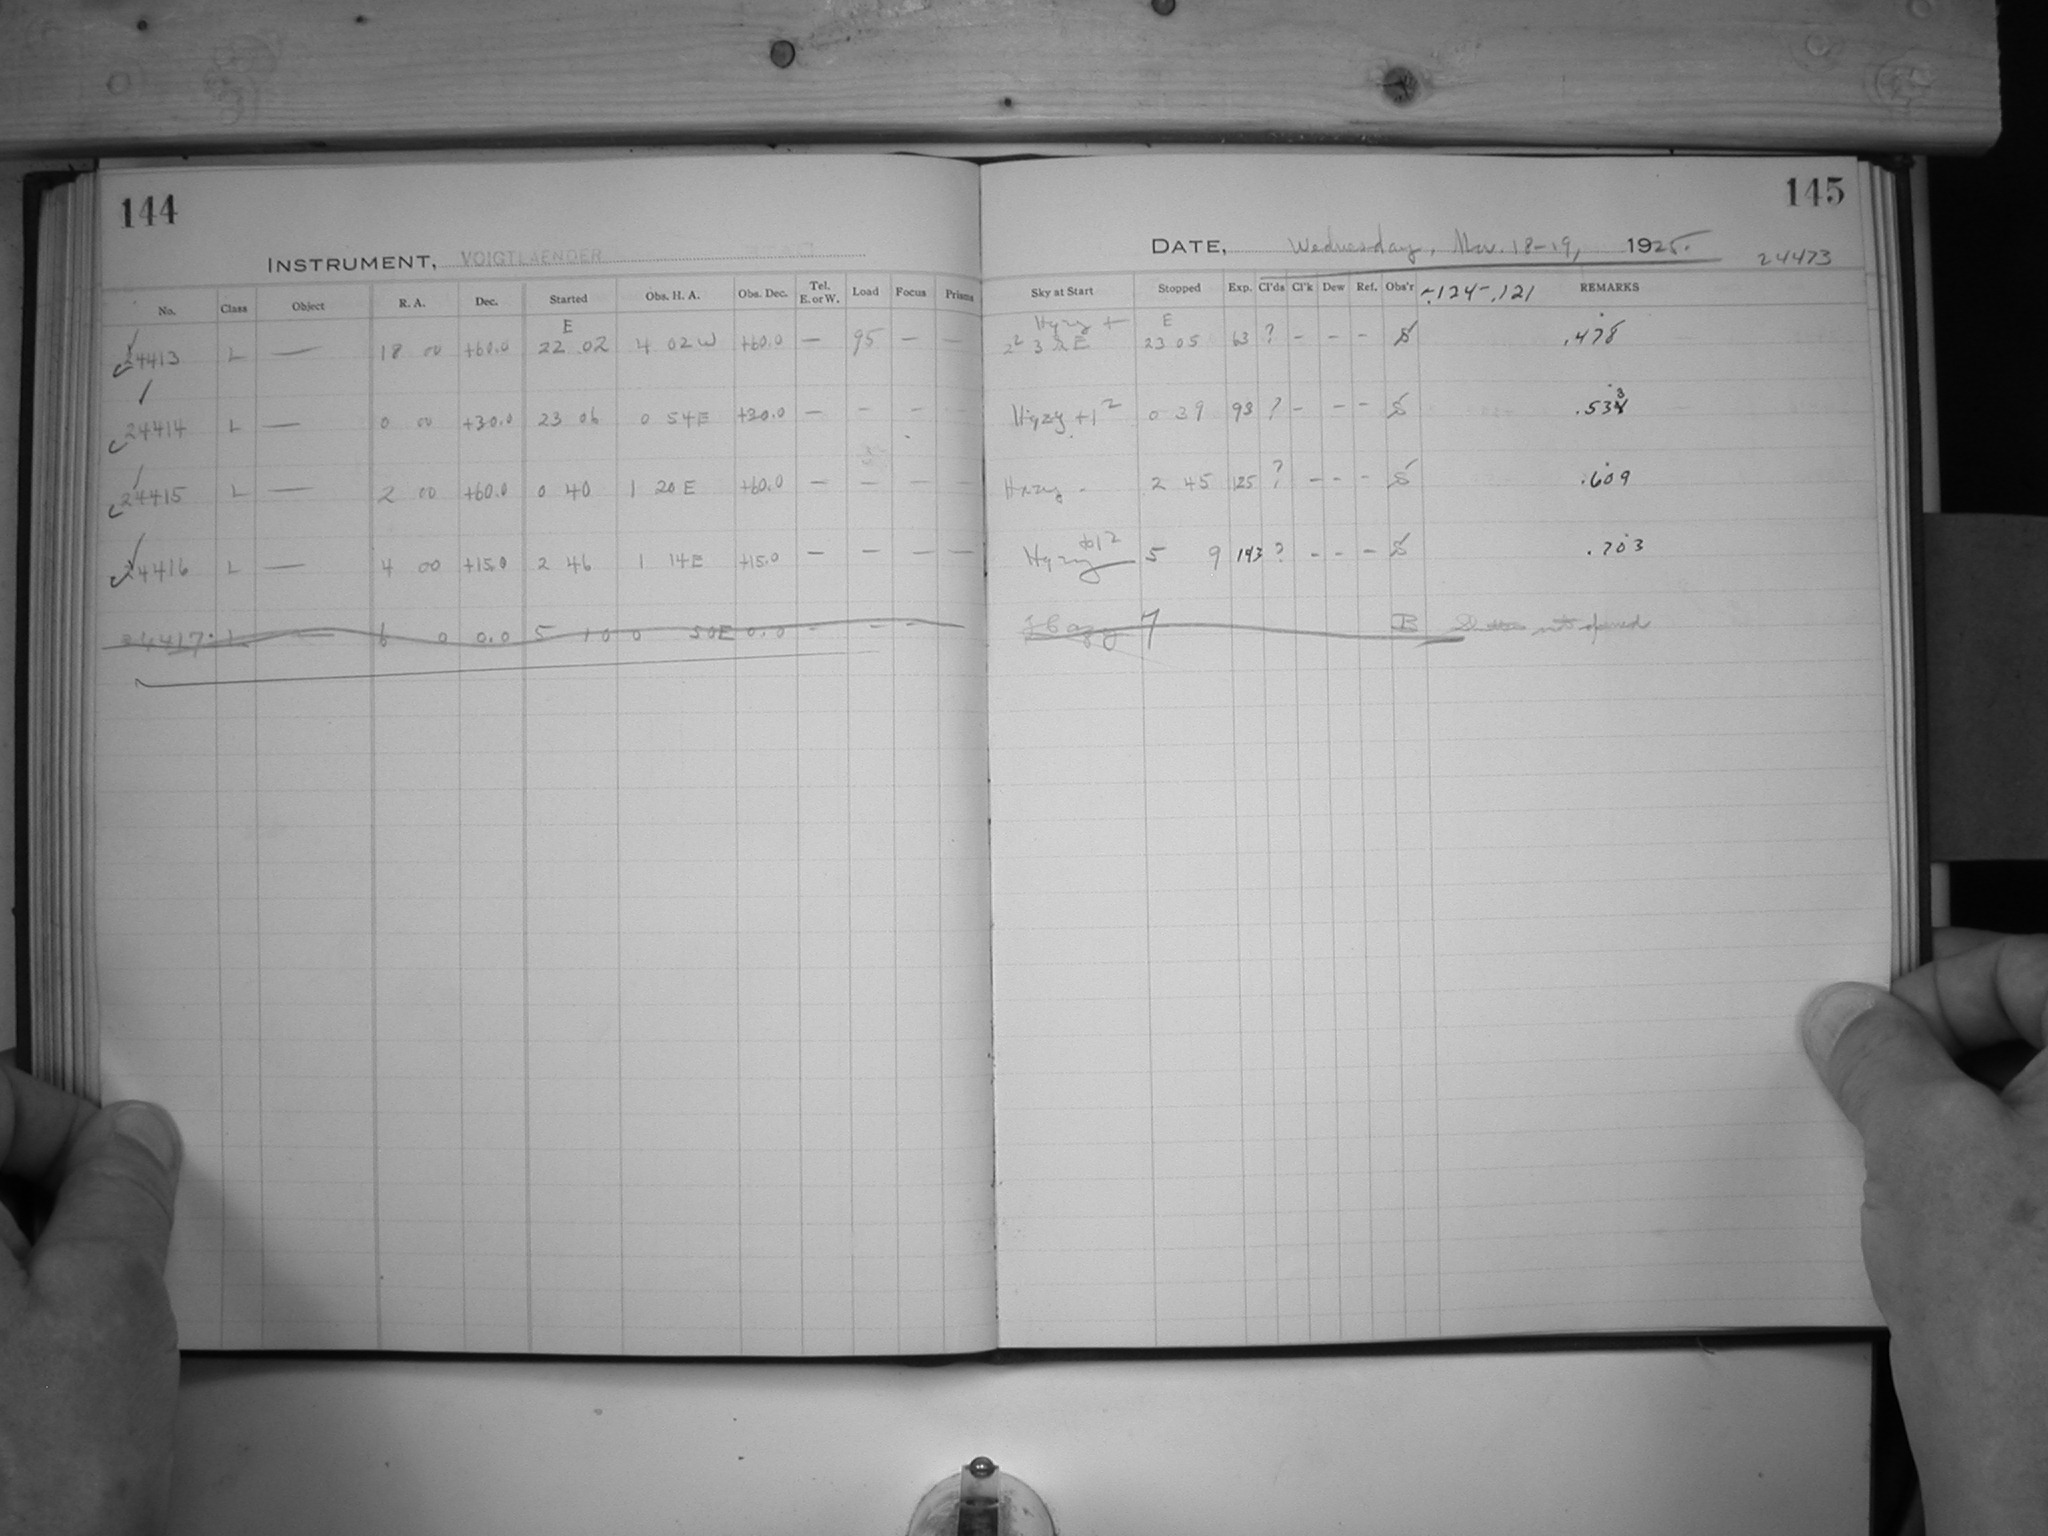 144
INSTRUMENT, VOIGTLAENDER
No. Class Object R. A. Dec. Started Obs. H. A. Obs. Dec. Tel. E. or W. Load Focus Prisms
E
24413 L — 18 00 +60.0 22 02 4 02 W +60.0 — 95 — —
24414 L — 0 00 +30.0 23 06 0 54 E +30.0 — – –
24415 L — 2 00 +60.0 0 40 1 20 E +60.0 — — – –
24416 L — 4 00 +15.0 2 46 1 14 E +15.0 — — — —
24417 L — 6 0 0.0 5 10 0 50 E 0.0 – – –
145
DATE, Wednesday, Nov. 18-19, 1925.
24473
Sky at Start Stopped Exp. Cl'ds Cl'k Dew Ref. Obs'r -.124 -.121 REMARKS
Hazy + E
23 05 63 ? – – – S .478
Hazy +1² 0 39 93 ? – – – S .533
Hazy - 2 45 125 ? – – – S .609
Hazy 5 9 143 ? – – – S .703
Hazy 7 B Shutter not opened